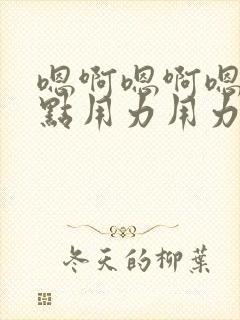 嗯啊嗯啊嗯
點用力用力
冬天的柳葉